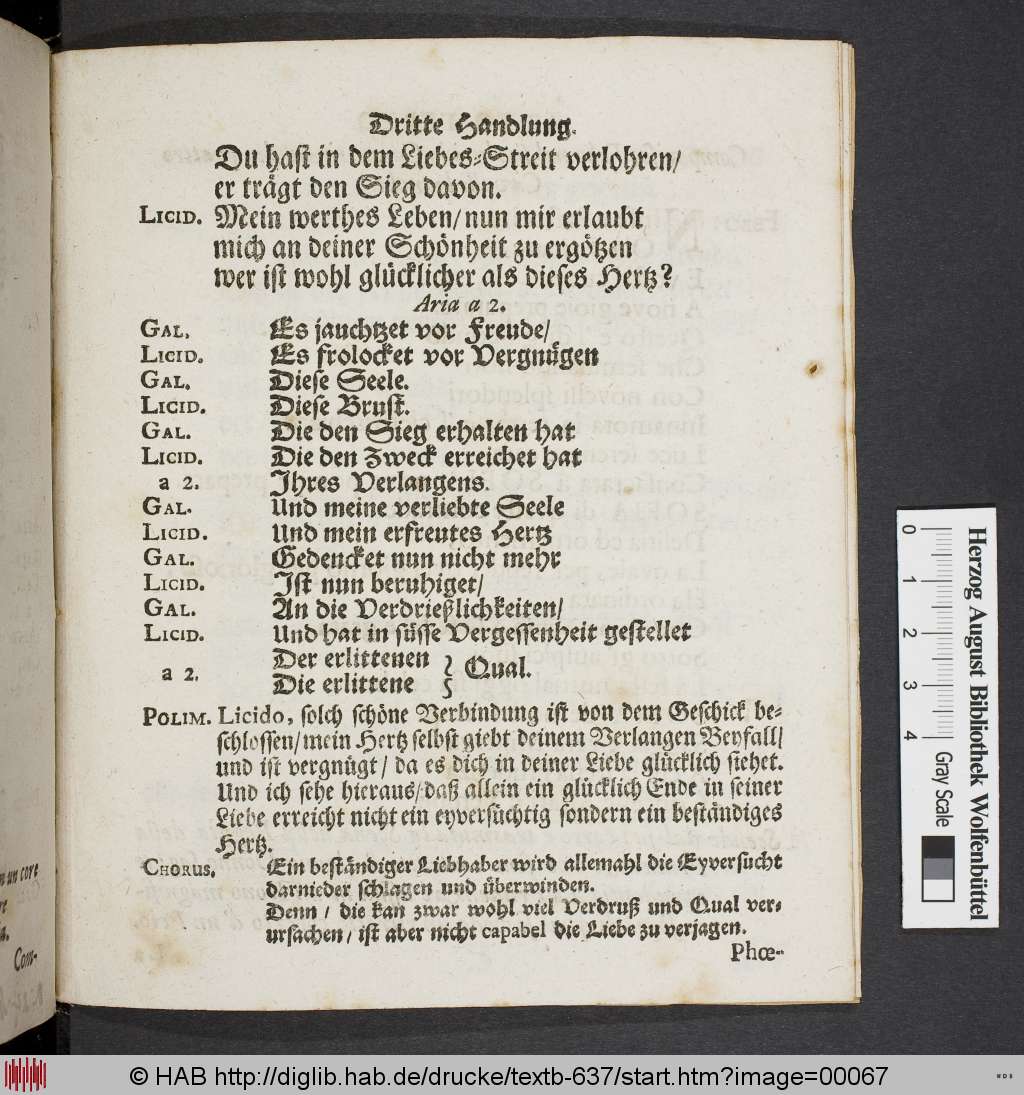 Dritte Handlung.
Du hast in dem Liebes-Streit verlohren/
er trägt den Sieg davon.
LICID. Mein werthes Leben/ nun mir erlaubt
mich an deiner Schönheit zu ergötzen
wer ist wohl glücklicher als dieses Hertz?
Aria a 2.
GAL. Es jauchtzet vor Freude/
LICID. Es frolocket vor Vergnügen
GAL. Diese Seele.
LICID. Diese Brust.
GAL. Die den Sieg erhalten hat
LICID. Die den Zweck erreichet hat
a 2. Ihres Verlangens.
GAL. Und meine verliebte Seele
LICID. Und mein erfreutes Hertz
GAL. Gedencket nun nicht mehr
LICID. Ist nun beruhiget/
GAL. An die Verdrießlichkeiten/
LICID. Und hat in süsse Vergessenheit gestellet
a 2. Der erlittenen } Qual.
Die erlittene
POLIM. Licido, solch schöne Verbindung ist von dem Geschick be-
schlossen/ mein Hertz selbst giebt deinem Verlangen Beyfall/
und ist vergnügt/ da es dich in deiner Liebe glücklich siehet.
Und ich sehe hieraus/ daß allein ein glücklich Ende in seiner
Liebe erreicht nicht ein eyversüchtig sondern ein beständiges
Hertz.
CHORUS. Ein beständiger Liebhaber wird allemahl die Eyversucht
darnieder schlagen und überwinden.
Denn / die kan zwar wohl viel Verdruß und Qual ver-
ursachen/ ist aber nicht capabel die Liebe zu verjagen.
Phœ-
n un core
re
a.
Com-
0 1 2 3 4
Herzog August Bibliothek Wolfenbüttel
Gray Scale
© HAB http://diglib.hab.de/drucke/textb-637/start.htm?image=00067
WDB